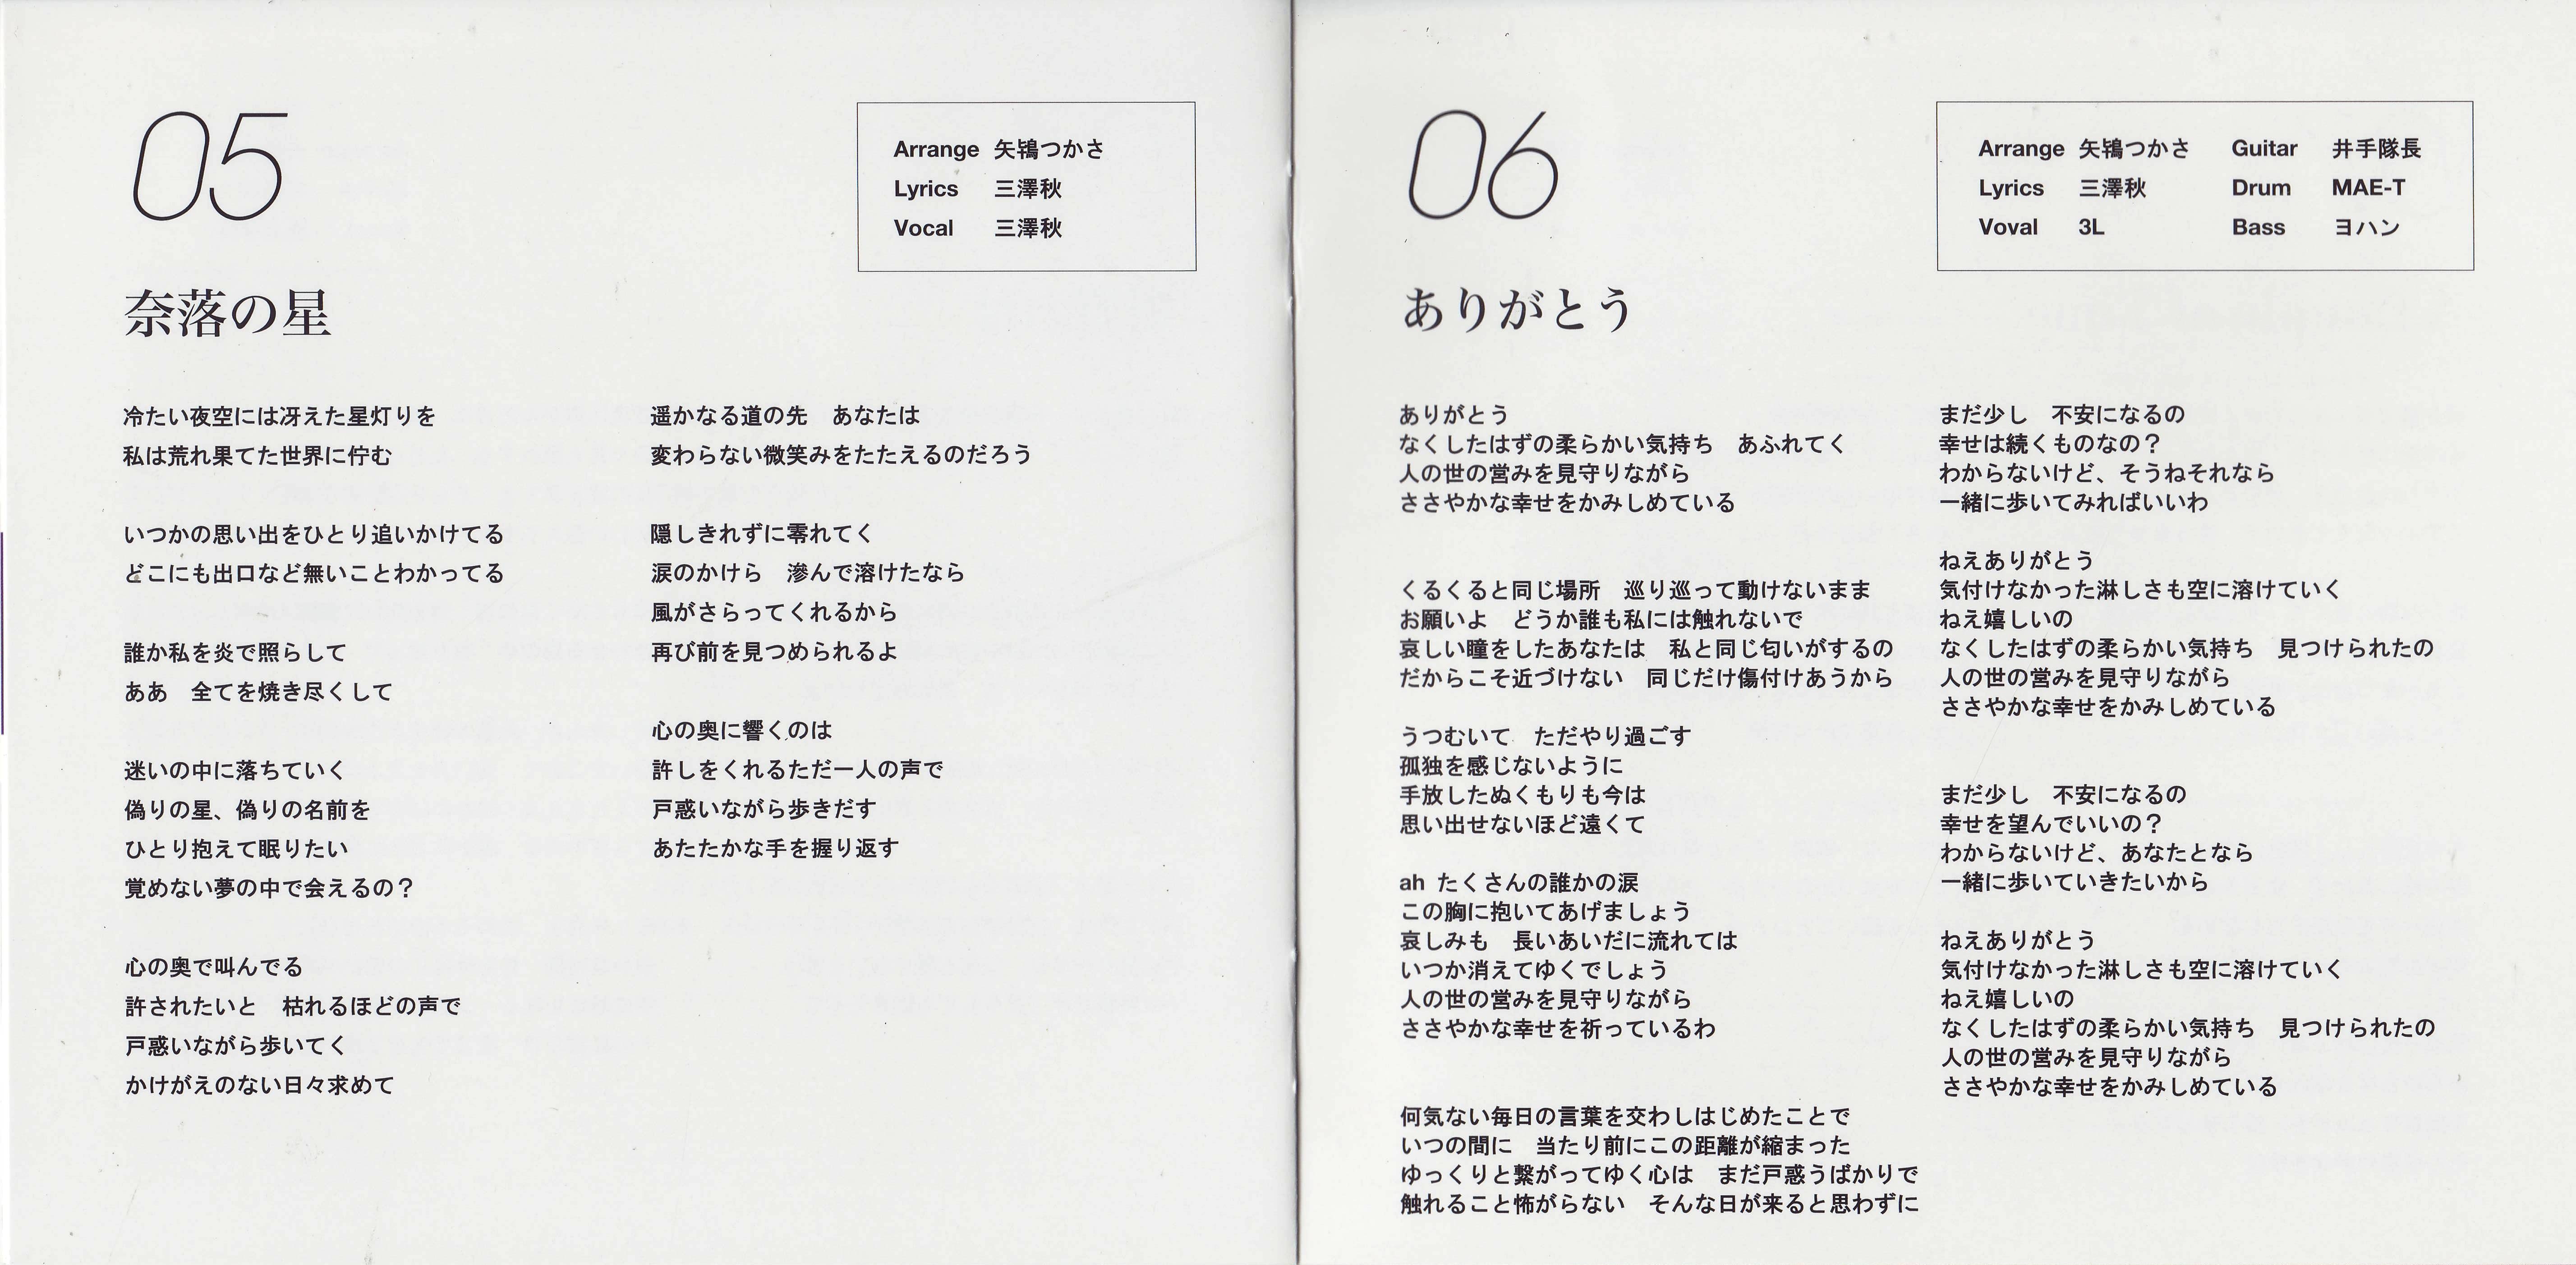 05
Arrange 矢鴇つかさ
Lyrics 三澤秋
Vocal 三澤秋
奈落の星
冷たい夜空には冴えた星灯りを
私は荒れ果てた世界に佇む
いつかの思い出をひとり追いかけてる
どこにも出口など無いことわかってる
誰か私を炎で照らして
ああ　全てを焼き尽くして
迷いの中に落ちていく
偽りの星、偽りの名前を
ひとり抱えて眠りたい
覚めない夢の中で会えるの？
心の奥で叫んでる
許されたいと　枯れるほどの声で
戸惑いながら歩いてく
かけがえのない日々求めて
遥かなる道の先　あなたは
変わらない微笑みをたたえるのだろう
隠しきれずに零れてく
涙のかけら　滲んで溶けたなら
風がさらってくれるから
再び前を見つめられるよ
心の奥に響くのは
許しをくれるただ一人の声で
戸惑いながら歩きだす
あたたかな手を握り返す
06
Arrange 矢鴇つかさ Guitar 井手隊長
Lyrics 三澤秋 Drum MAE-T
Voval 3L Bass ヨハン
ありがとう
ありがとう
なくしたはずの柔らかい気持ち　あふれてく
人の世の営みを見守りながら
ささやかな幸せをかみしめている
くるくると同じ場所　巡り巡って動けないまま
お願いよ　どうか誰も私には触れないで
哀しい瞳をしたあなたは　私と同じ匂いがするの
だからこそ近づけない　同じだけ傷付けあうから
うつむいて　ただやり過ごす
孤独を感じないように
手放したぬくもりも今は
思い出せないほど遠くて
ah たくさんの誰かの涙
この胸に抱いてあげましょう
哀しみも　長いあいだに流れては
いつか消えてゆくでしょう
人の世の営みを見守りながら
ささやかな幸せを祈っているわ
何気ない毎日の言葉を交わしはじめたことで
いつの間に　当たり前にこの距離が縮まった
ゆっくりと繋がってゆく心は　まだ戸惑うばかりで
触れること怖がらない　そんな日が来ると思わずに
まだ少し　不安になるの
幸せは続くものなの？
わからないけど、そうねそれなら
一緒に歩いてみればいいわ
ねえありがとう
気付けなかった淋しさも空に溶けていく
ねえ嬉しいの
なくしたはずの柔らかい気持ち　見つけられたの
人の世の営みを見守りながら
ささやかな幸せをかみしめている
まだ少し　不安になるの
幸せを望んでいいの？
わからないけど、あなたとなら
一緒に歩いていきたいから
ねえありがとう
気付けなかった淋しさも空に溶けていく
ねえ嬉しいの
なくしたはずの柔らかい気持ち　見つけられたの
人の世の営みを見守りながら
ささやかな幸せをかみしめている